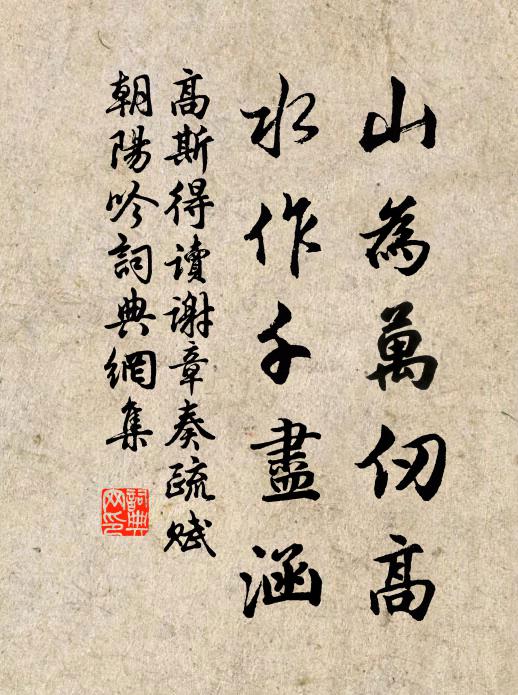 山為萬仞高
水作千盡涵
高斯得讀謝章奏疏賦
朝陽吟詞典網集
詞典網印